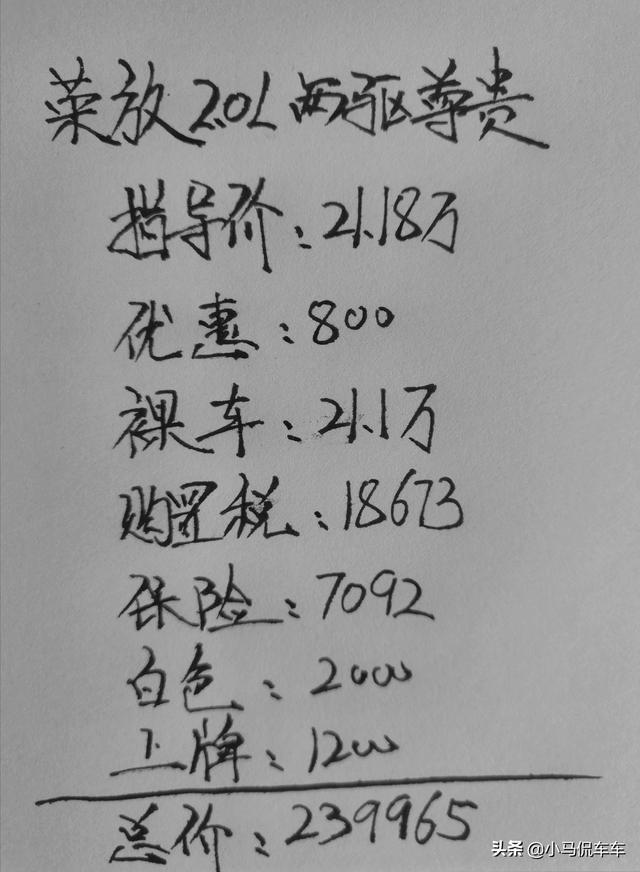 荣放2.0L两驱尊贵
指导价:21.18万
优惠:800
裸车:21.1万
购置税:18673
保险:7092
白色:2000
上牌:1200
总价:239965
头条 @小马侃车车